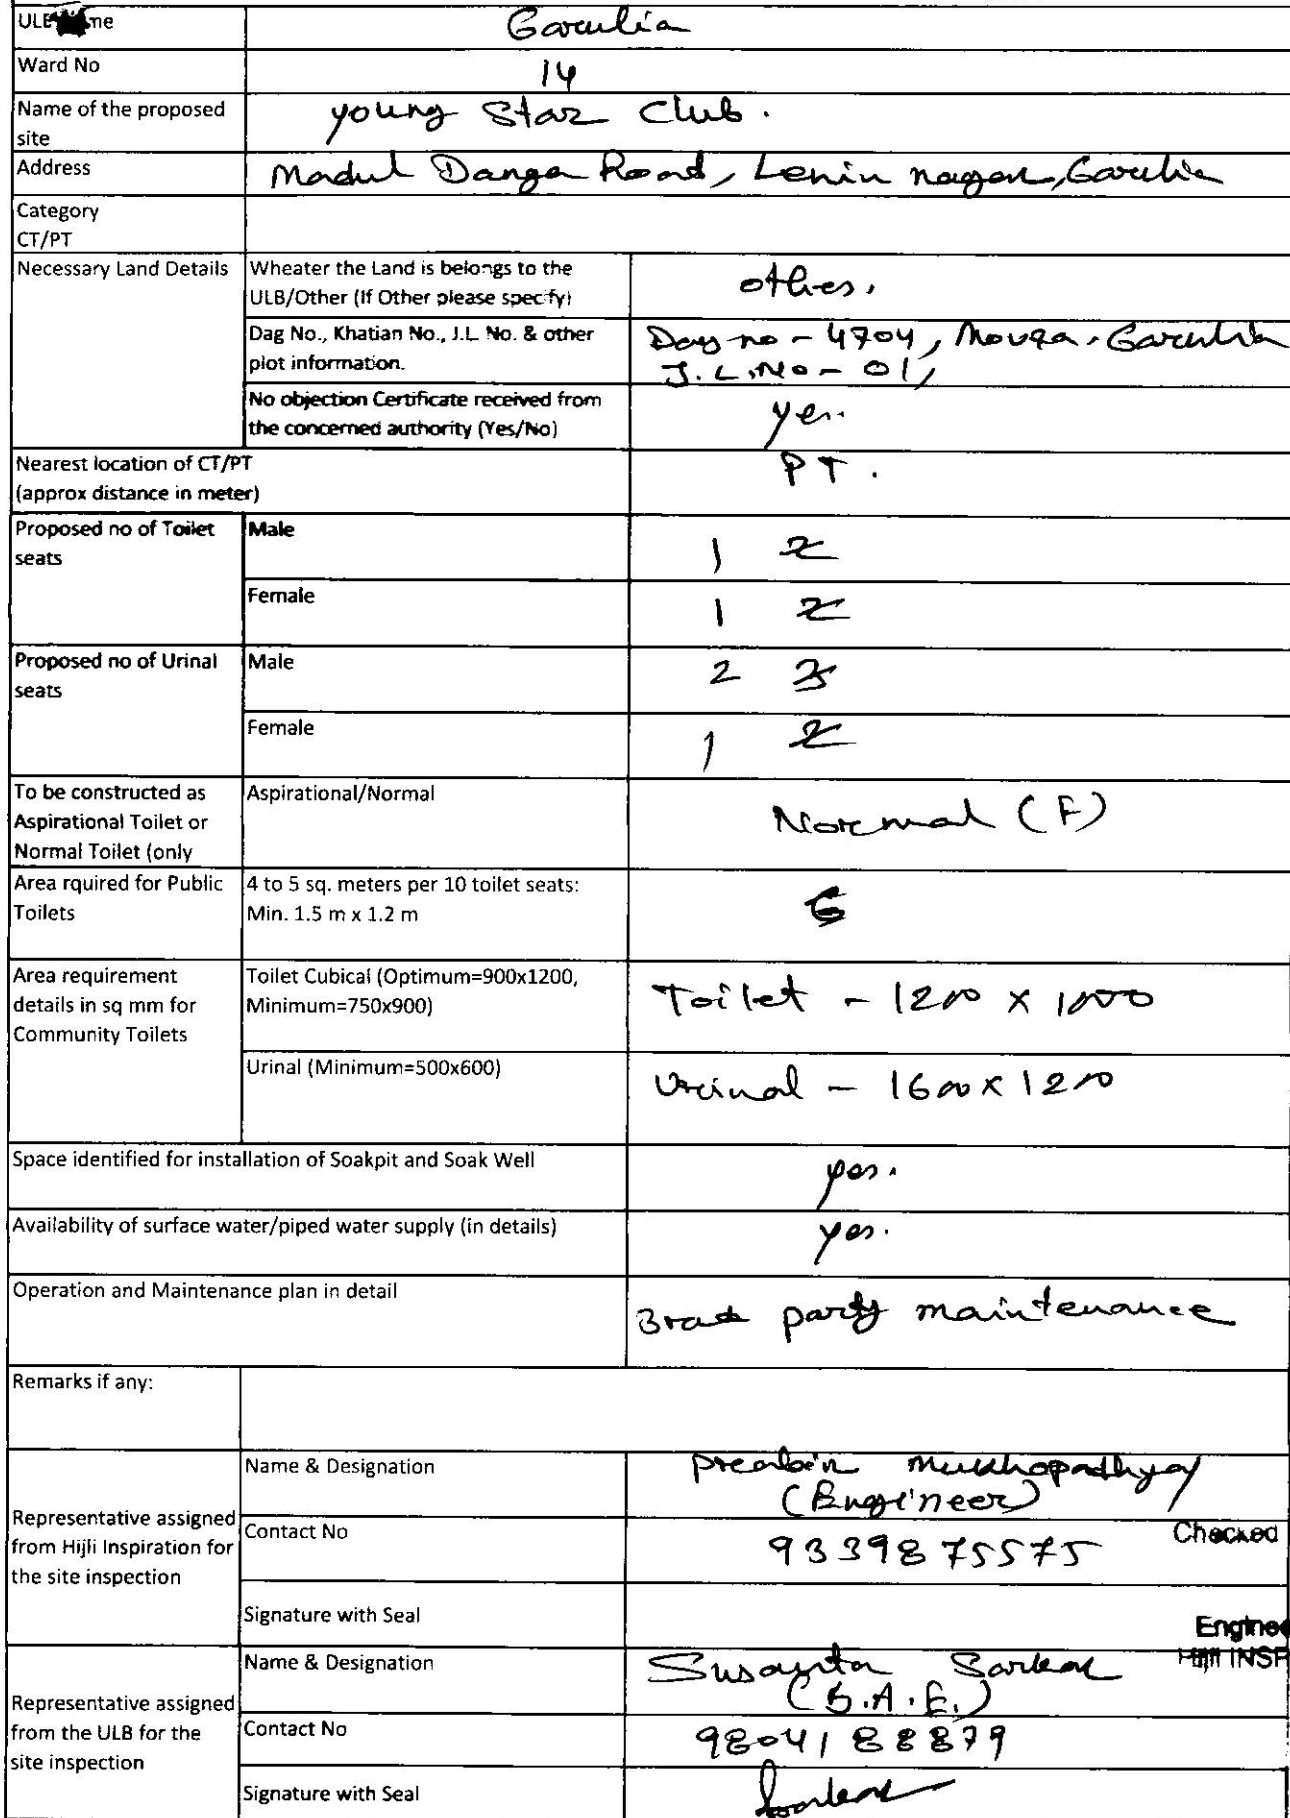 ULB me
Garulia
Ward No
14
Name of the proposed
site
young Star Club.
Address
Madul Danga Road, Lenin nagar, Garulia
Category
CT/PT
Necessary Land Details
Wheater the Land is belongs to the
ULB/Other (If Other please specify)
others.
Dag No., Khatian No., J.L. No. & other
plot information.
Dag no - 4704, Mouza - Garulia
J.L.No - 01,
No objection Certificate received from
the concerned authority (Yes/No)
yes.
Nearest location of CT/PT
(approx distance in meter)
PT.
Proposed no of Toilet
seats
Male
1 2
Female
1 2
Proposed no of Urinal
seats
Male
2 3
Female
1 2
To be constructed as
Aspirational Toilet or
Normal Toilet (only
Aspirational/Normal
Normal (F)
Area rquired for Public
Toilets
4 to 5 sq. meters per 10 toilet seats:
Min. 1.5 m x 1.2 m
Area requirement
details in sq mm for
Community Toilets
Toilet Cubical (Optimum=900x1200,
Minimum=750x900)
Toilet - 1200 x 1000
Urinal (Minimum=500x600)
Urinal - 1600 x 1200
Space identified for installation of Soakpit and Soak Well
yes.
Availability of surface water/piped water supply (in details)
yes.
Operation and Maintenance plan in detail
party maintenance
Remarks if any:
Representative assigned
from Hijli Inspiration for
the site inspection
Name & Designation
Prabir Mukhopadhyay
(Engineer)
Contact No
9339875575
Checked
Signature with Seal
Enginee
Hijli INSP
Representative assigned
from the ULB for the
site inspection
Name & Designation
Susanta Sarkar
(S.A.E.)
Contact No
9804188879
Signature with Seal
Sarkar